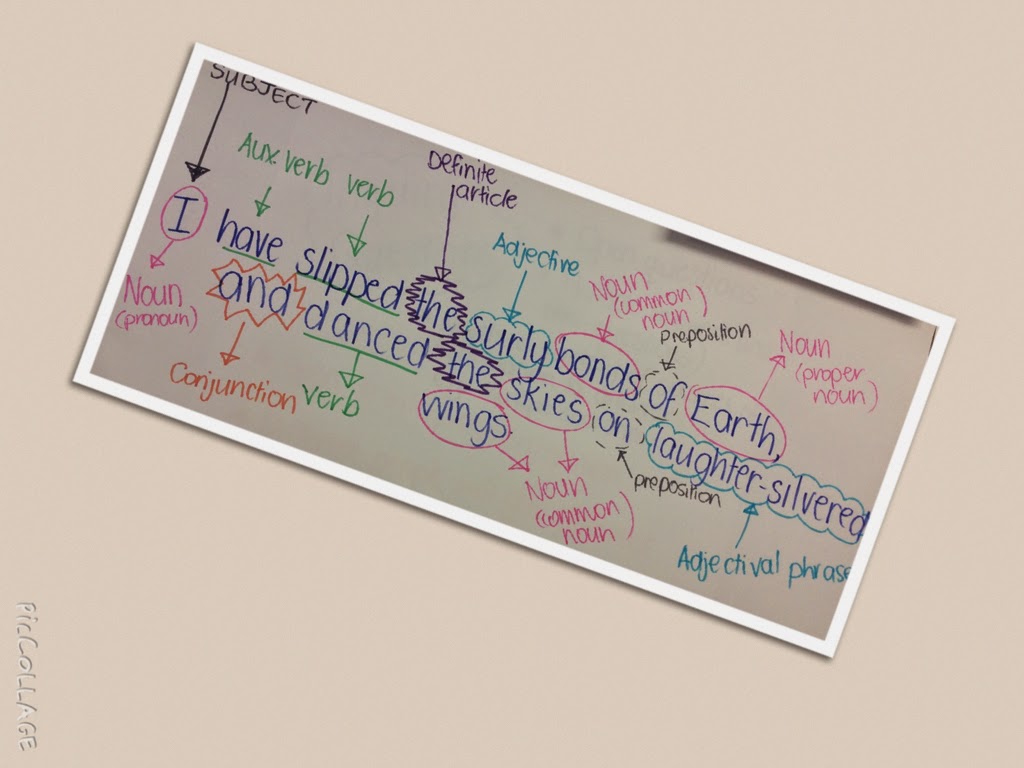 SUBJECT
Aux. verb verb
Definite
article
Adjective
Noun
(common
noun)
preposition
Noun
(proper
noun)
I have slipped the surly bonds of Earth,
and danced the skies on laughter-silvered
wings
Noun
(pronoun)
Conjunction
verb
Noun
(common
noun)
preposition
Adjectival phrase
PicCOLLAGE